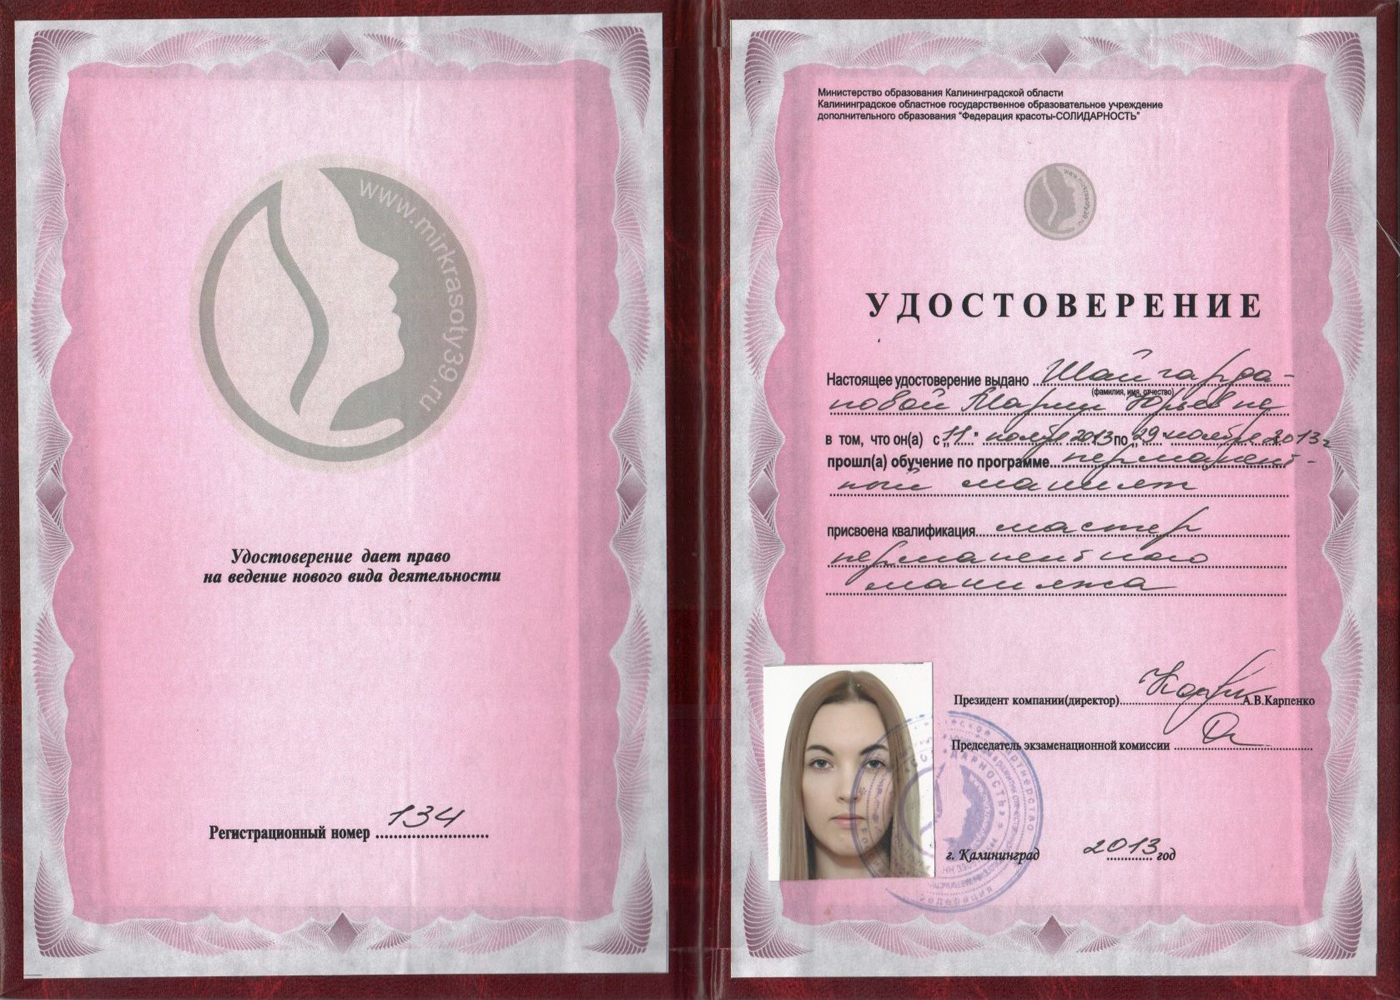 www.mirkrasoty39.ru
Удостоверение дает право
на ведение нового вида деятельности
Регистрационный номер 134
Министерство образования Калининградской области
Калининградское областное государственное образовательное учреждение
дополнительного образования "Федерация красоты-СОЛИДАРНОСТЬ"
УДОСТОВЕРЕНИЕ
Настоящее удостоверение выдано Шайгарда-
(фамилия, имя, отчество)
новой Марии Юрьевне
в том, что он(а) с „11" ноября 2013 по „29 ноября 2013г
прошл(а) обучение по программе перманент-
ный макияж
присвоена квалификация мастер
перманентного
макияжа
Президент компании(директор) А.В.Карпенко
Председатель экзаменационной комиссии
г. Калининград 2013 год